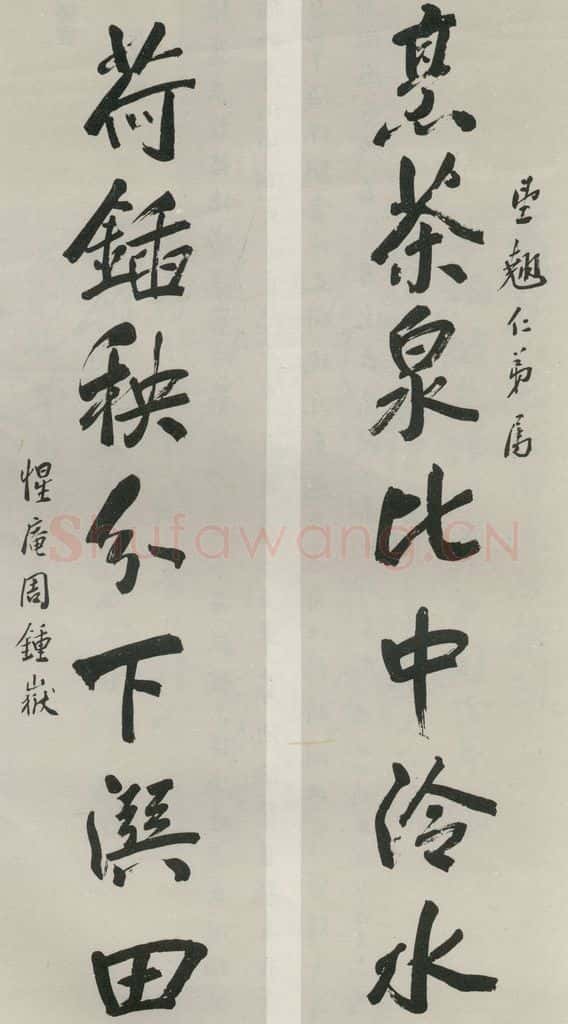 翹仁弟属
烹茶泉比中泠水
荷鍤秧分下潠田
惺庵周鍾嶽
Shufawang.CN